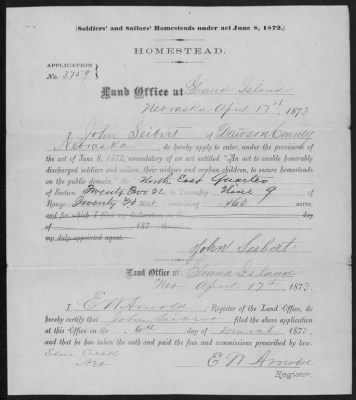 (Soldiers' and Sailors' Homesteads under act June 8, 1872.)
HOMESTEAD.
APPLICATION
No. 3759
Land Office at Grand Island
Nebraska April 17th 1873
I, John Seibert of Dawson County
Nebraska, do hereby apply to enter, under the provisions of
the act of June 8, 1872, amendatory of an act entitled "An act to enable honorably
discharged soldiers and sailors, their widows and orphan children, to secure homesteads
on the public domain," the North East Quarter
of Section Twenty Two 22 in Township Nine 9
of Range Twenty 20 West, containing 160 acres,
and for which I filed my declaration on the day
of 187 through
my duly appointed agent.
John Seibert.
Land Office at Grand Island
Neb April 17th 1873.
I, E W Arnold, Register of the Land Office, do
hereby certify that John Seibert filed the above application
at this Office on the day of 1873,
and that he has taken the oath and paid the fees and commissions prescribed by law.
Elm Creek
Neb
E W Arnold
Register.